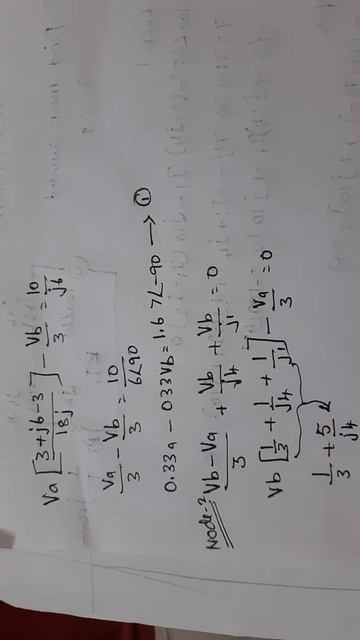 Va [ (3+j6-3)/18j ] - Vb/3 = 10/j6
Va/3 - Vb/3 = 10/6∠90
0.33a - 033Vb = 1.67∠-90 → ①
Node-2
Vb-Va/3 + Vb/j4 + Vb/j1 = 0
Vb [ 1/3 + 1/j4 + 1/j1 ] - Va/3 = 0
1/3 + 5/j4